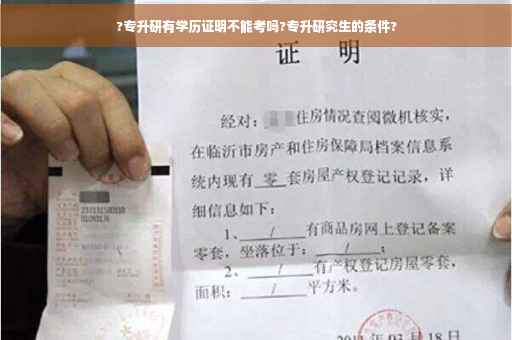 ?专升研有学历证明不能考吗?专升研究生的条件?
证 明
经对: 住房情况查阅微机核实,
在临沂市房产和住房保障局档案信息系
统内现有 零 套房屋产权登记记录, 详
细信息如下:
1、 / 有商品房网上登记备案
零套, 坐落位于: / ;
2、 / 有产权登记房屋零套,
面积: / 平方米。
03 月 18 日